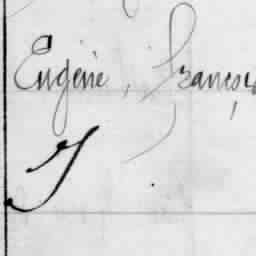 Eugène, Françoi